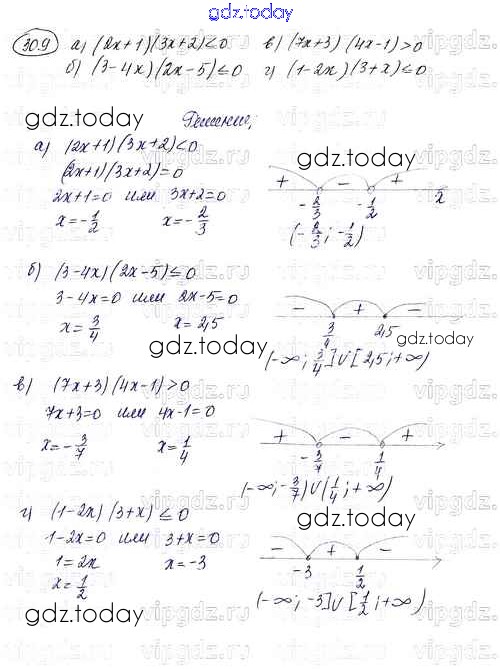 gdz.today
30.9 а) (2x+1)(3x+2)<0 в) (7x+3)(4x-1)>0
б) (3-4x)(2x-5)≤0 г) (1-2x)(3+x)≤0
gdz.today
Решение,
gdz.today
а) (2x+1)(3x+2)<0
(2x+1)(3x+2)=0
2x+1=0 или 3x+2=0
x=-1/2 x=-2/3
+ - +
-2/3 -1/2 x
(-2/3; -1/2)
gdz.today
б) (3-4x)(2x-5)≤0
3-4x=0 или 2x-5=0
x=3/4 x=2,5
- + -
3/4 2,5
(-∞; 3/4]∪[2,5;+∞)
gdz.today
gdz.today
в) (7x+3)(4x-1)>0
7x+3=0 или 4x-1=0
x=-3/7 x=1/4
+ - +
-3/7 1/4
(-∞;-3/7)∪(1/4;+∞)
gdz.today
г) (1-2x)(3+x)≤0
1-2x=0 или 3+x=0
1=2x x=-3
x=1/2
- + -
-3 1/2
(-∞; -3]∪[1/2;+∞)
gdz.today
gdz.today
vipgdz.ru